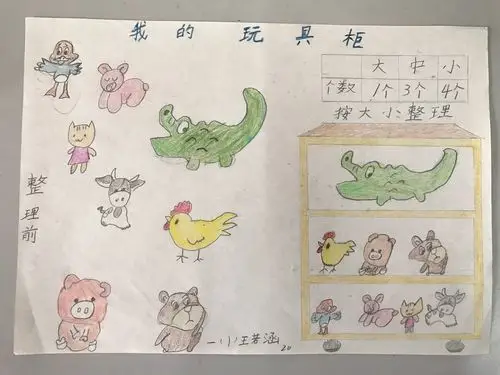 我的玩具柜
大 中 小
个数 1个 3个 4个
按大小整理
整理前
一(1)王若涵
20